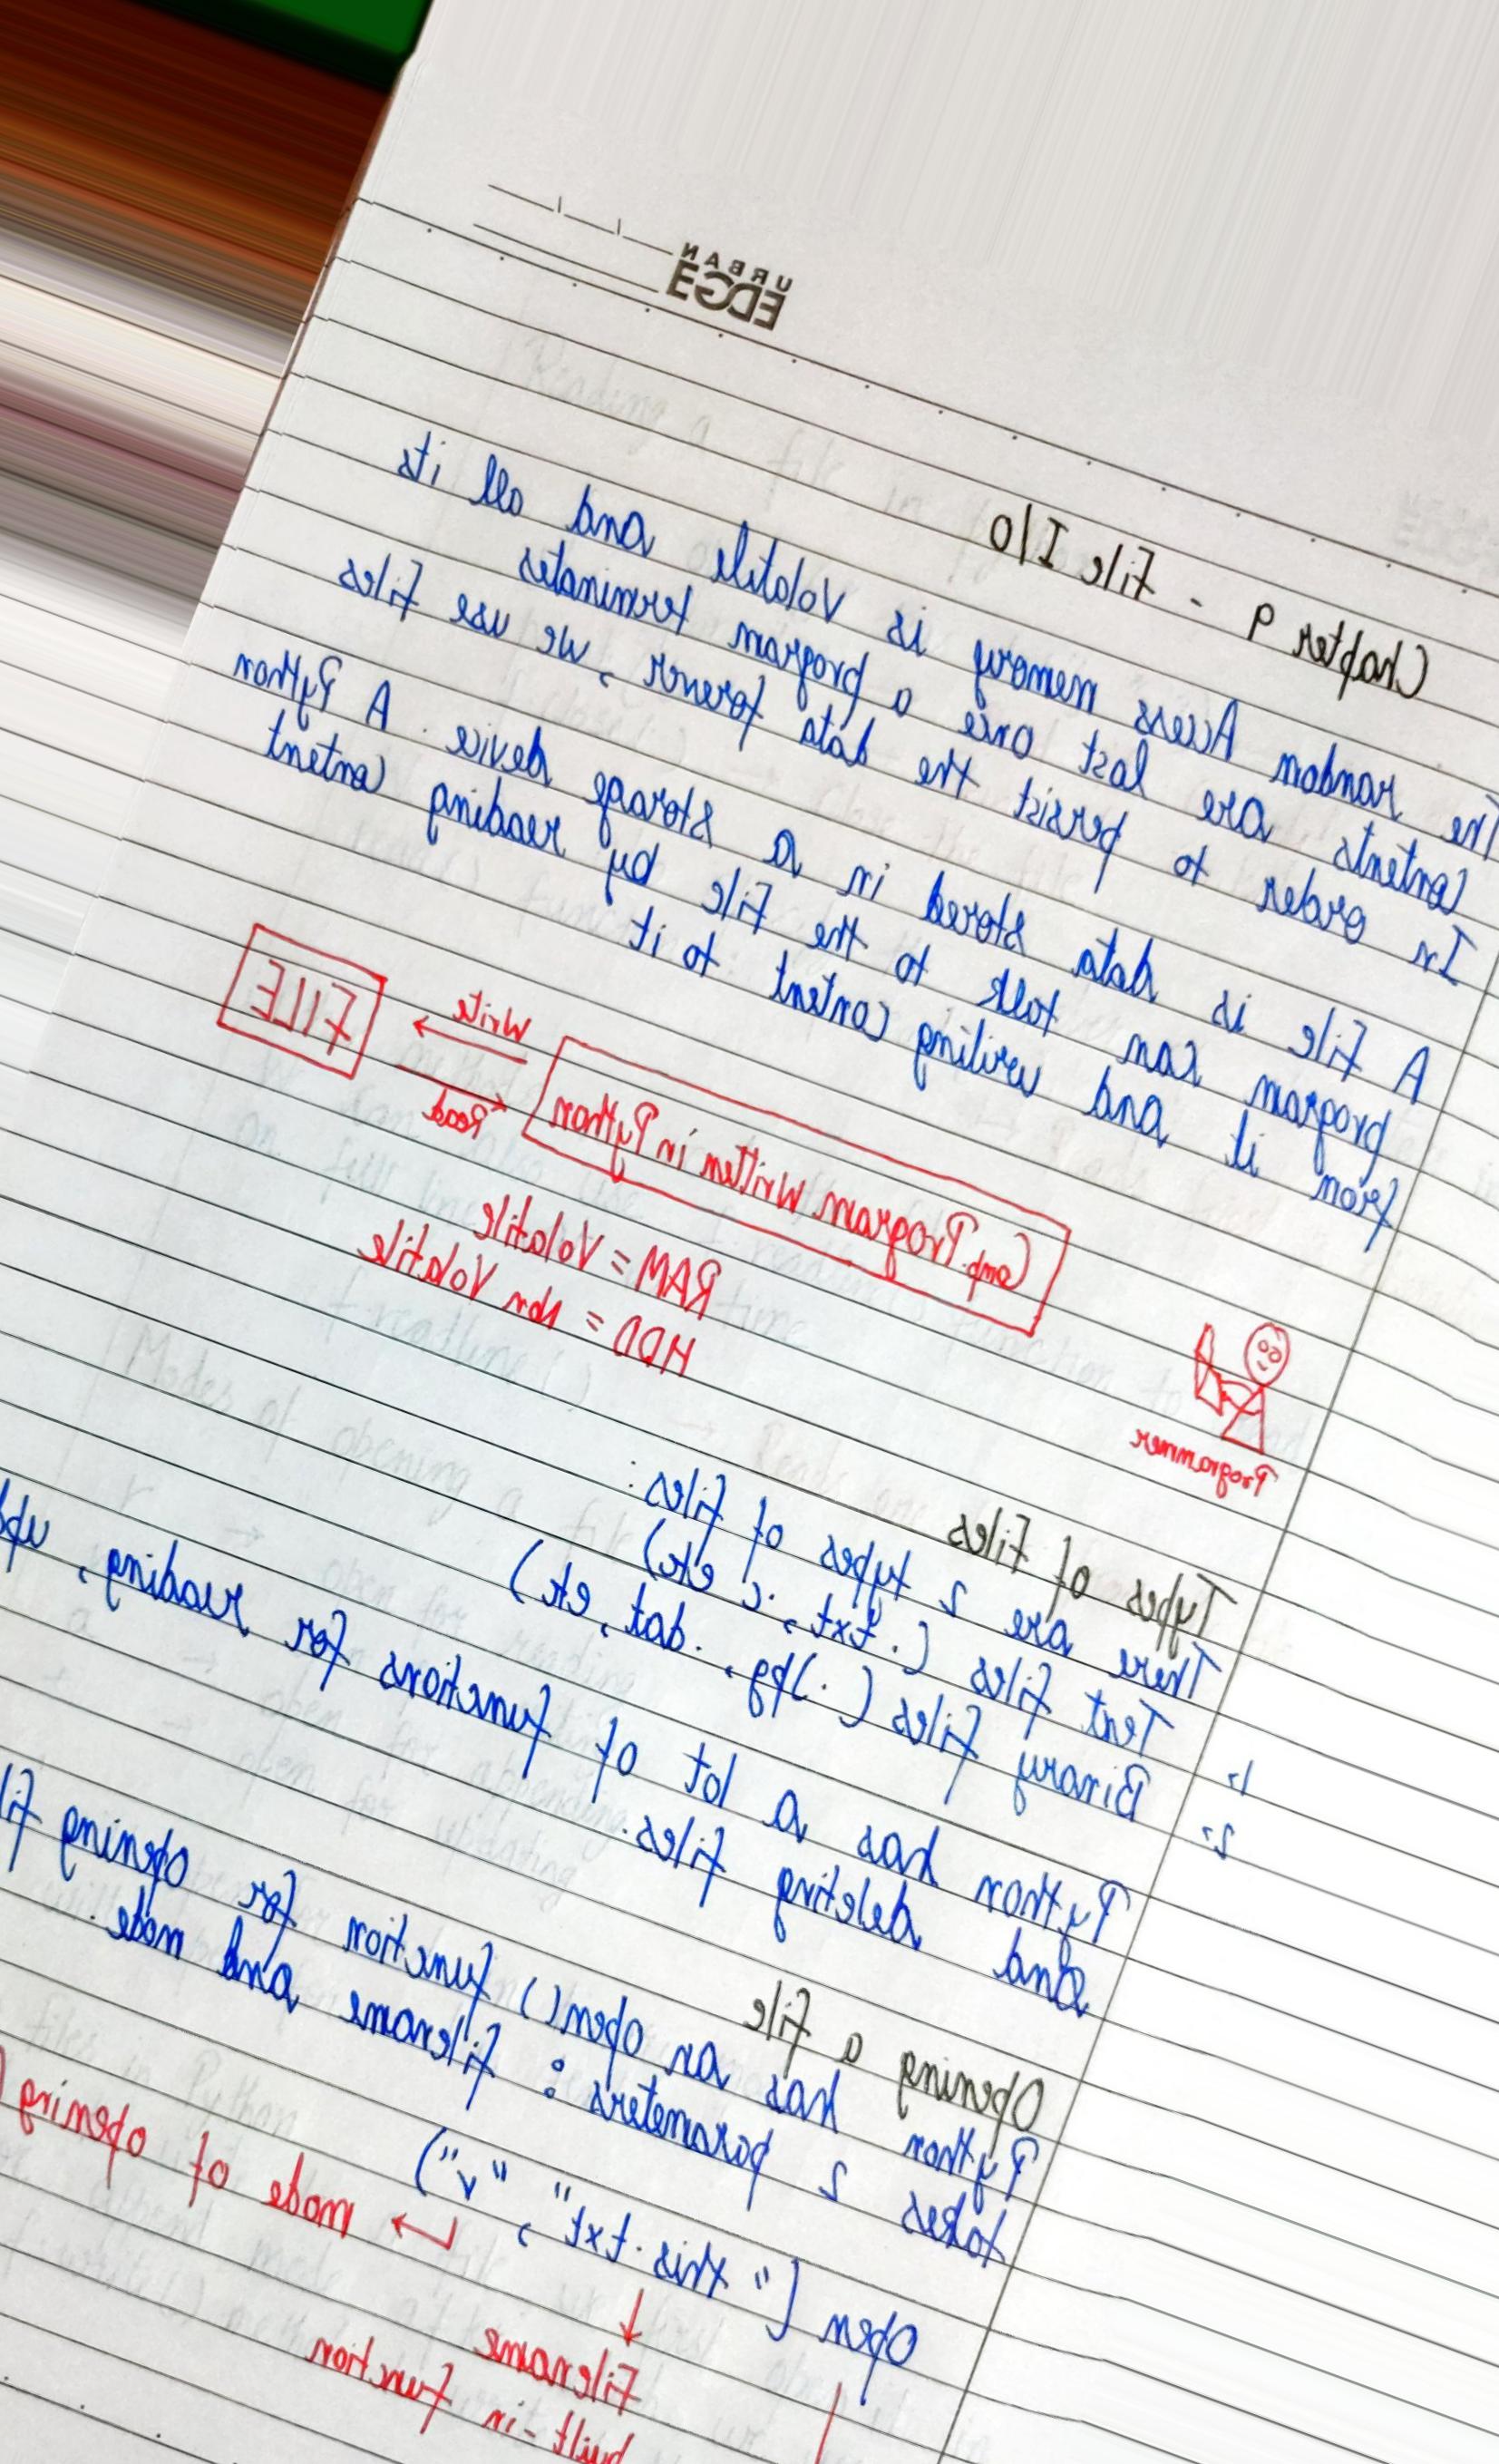 URBAN
EDGE
Chapter 9 - File I/O
The random Access memory is volatile and all its
contents are lost once a program terminates
In order to persist the data forever, we use files
A file is data stored in a storage device. A Python
program can talk to the file by reading content
from it and writing content to it
Programmer
Comp. Program written in Python
Write
Read
FILE
RAM = Volatile
HDD = Non Volatile
Types of files
There are 2 types of files:
1. Text files (.txt, .c etc)
2. Binary files (.jpg, .dat, etc)
Python has a lot of functions for reading,
and deleting files.
Opening a file
Python has an open() function for opening
takes 2 parameters : filename and mode.
open ("this.txt", "r")
mode of opening
Filename
built-in function